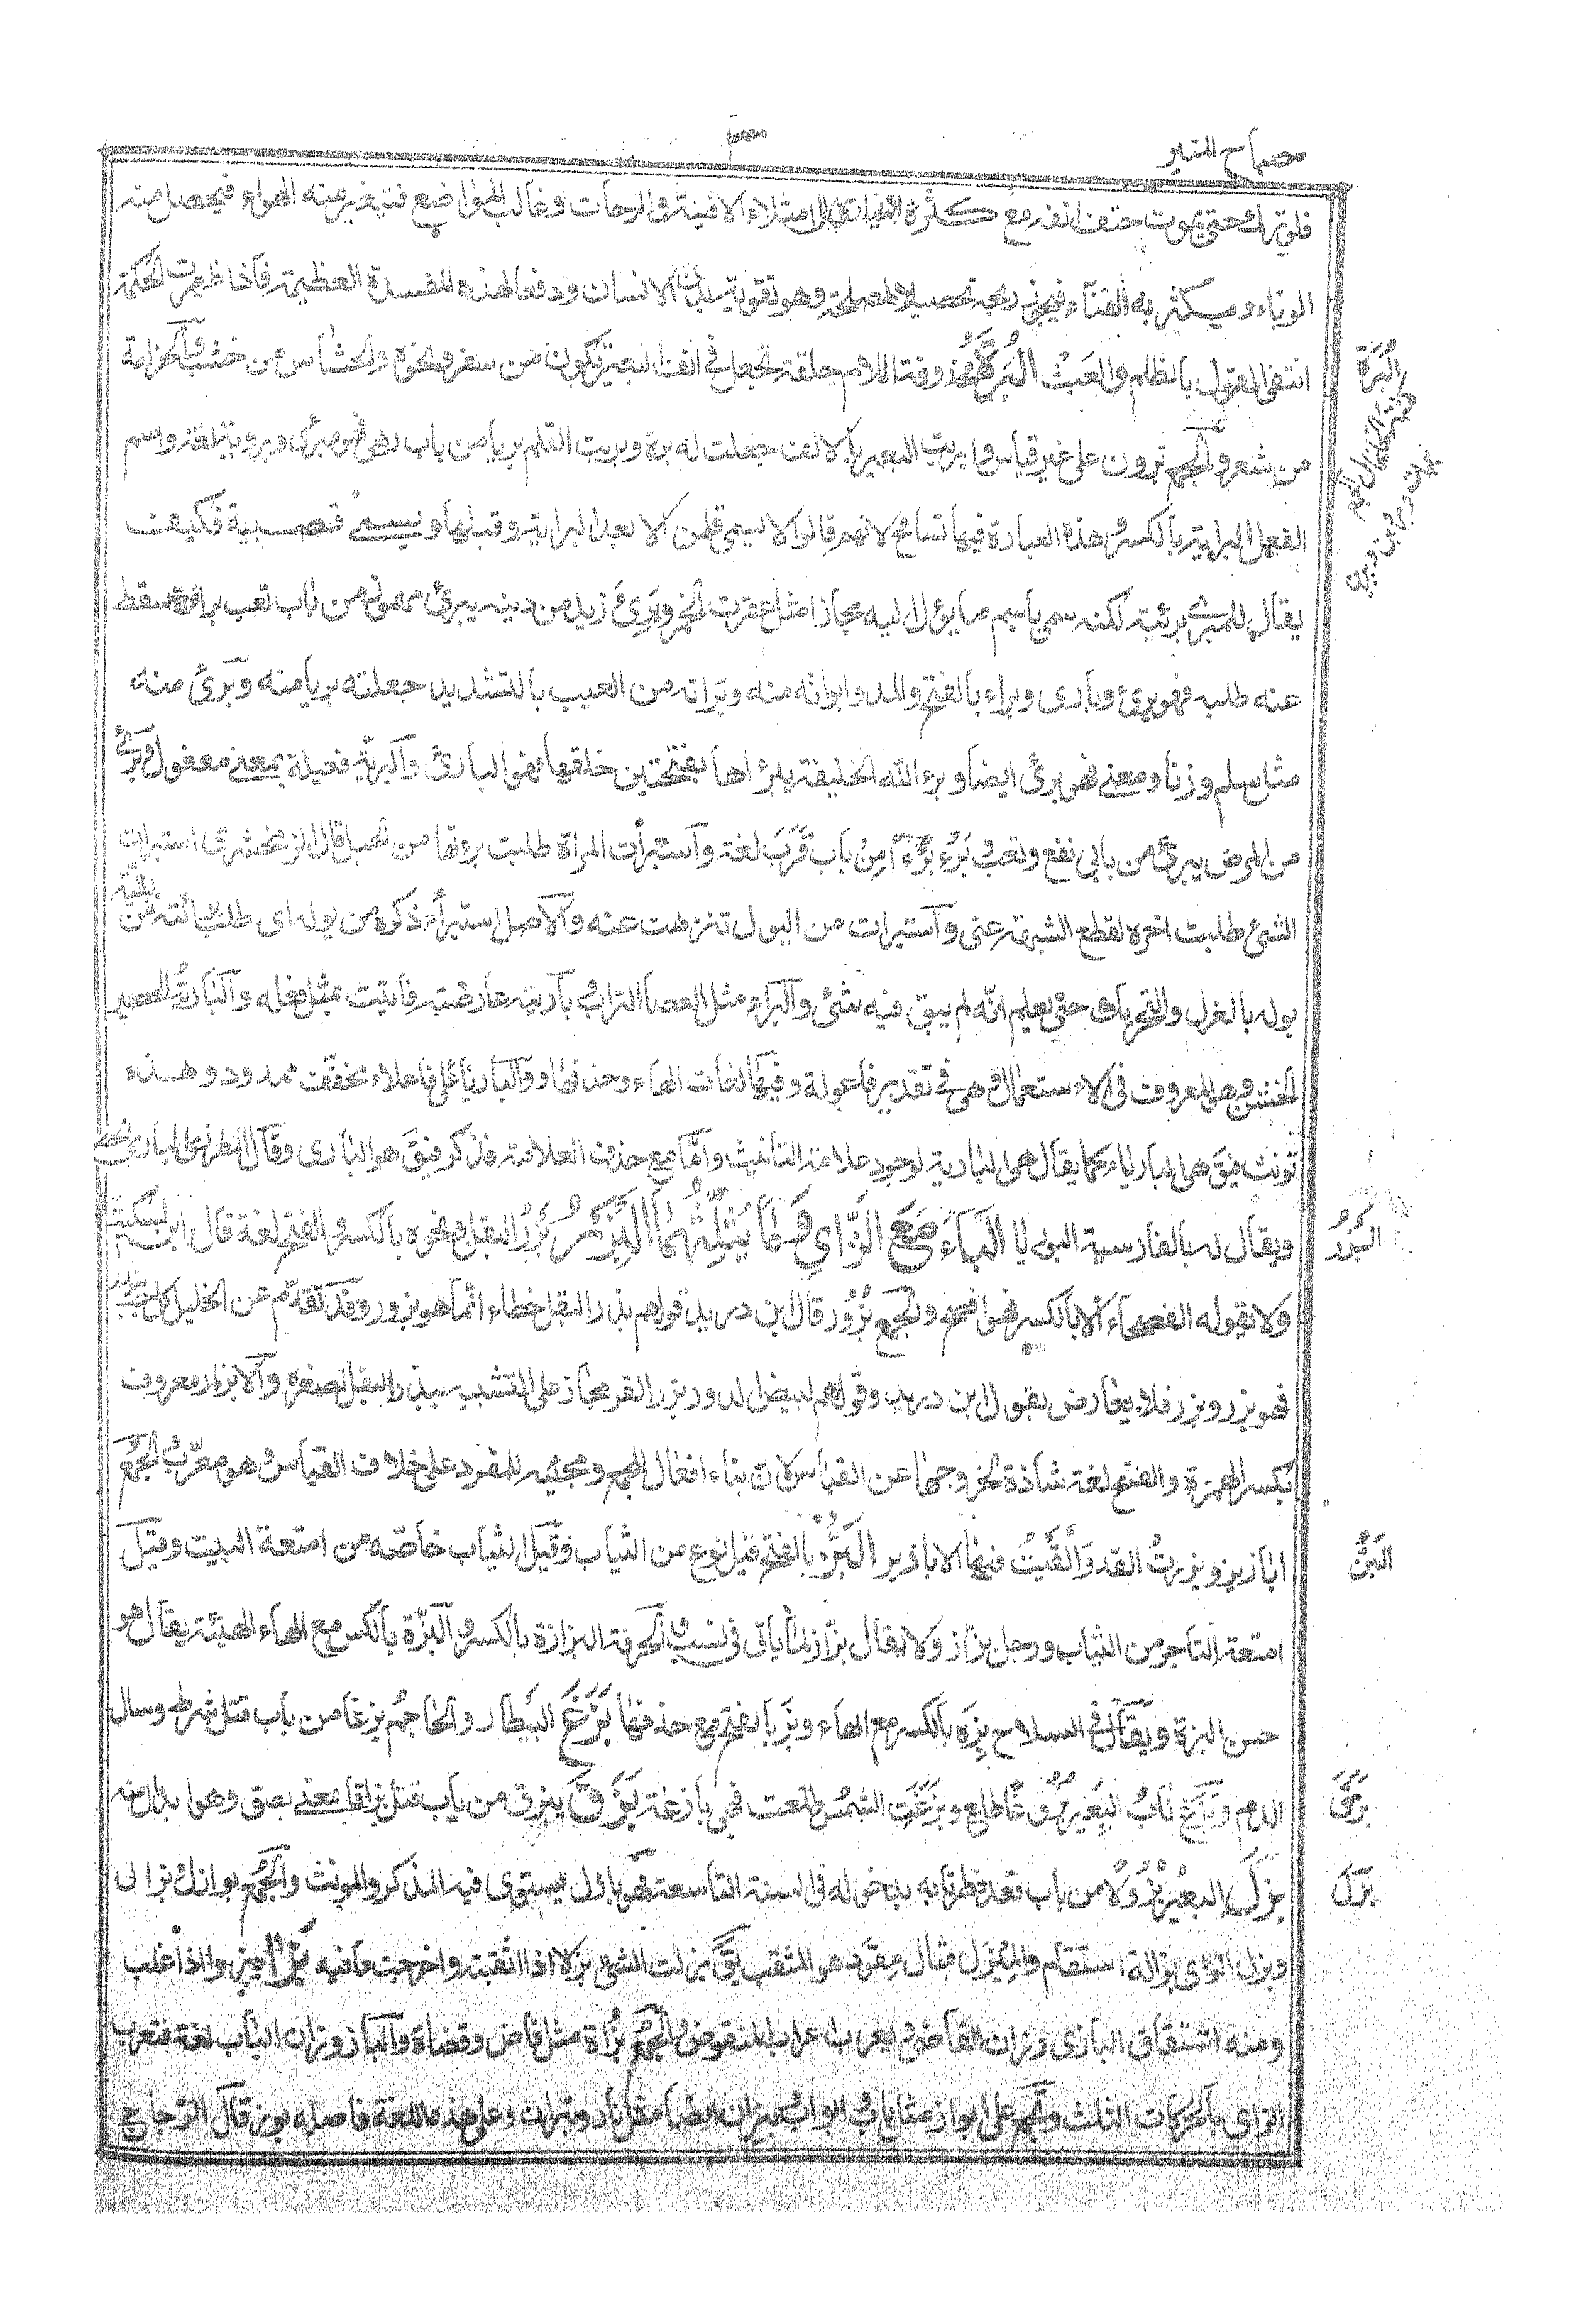 مصباح المنير
٣٠
فلو ترك حتى يموت حتف انفه مع كثرة لادى الى امتلاء الافنية والرحاب وغالب المواضع فتتغير منه الهواء فيحصل منه
الوباء ويكثر به الفناء فيجوز ذبحه تحصيلا للمصلحة وهو تقوية بدن الانسان ودفعا لهذه المفسدة العظيمة فاذا ظهرت الحكمة
انتفى القول بالظلم والعبث البُرَةُ محذوفة اللام حلقة تجعل فى انف البعير تكون من صفر ونحوه والخشاش من خشب والخزامة
من شعر والجمع برون على غير قياس وابريت البعير بالالف جعلت له برة وبريت القلم بريا من باب رمى فهو مبرى وبروته لغة واسم
الفعل البراية بالكسر وهذه العبارة فيها تسامح لانهم قالوا لا يسمى قلما الا بعد البراية وقبلها يسمى قصبة فكيف
يقال للمبرى بريته لكنه سمى باسم ما يؤل اليه مجازا مثل عصرت الخمر وبرئ زيد من دينه يبرئ مهموز من باب تعب براءة سقط
عنه طلبه فهو برئ وبارى وبراء بالفتح والمد وابراته منه وبراته من العيب بالتشديد جعلته بريا منه وبرئ منه
مثل سلم وزنا ومعنى فهو برئ ايضا وبرء الله الخليقة يبرؤاها بفتحتين خلقها فهو البارئ والبرية فعيلة بمعنى مفعول وبرئ
من المرض يبرئ من بابى نفع وتعب وبرؤ برءا من باب قرب لغة واستبرأت المراة طلبت براءتها من الحبل قال الزمخشرى استبرات
الشئ طلبت اخره لقطع الشبهة عنى واستبرات من البول تنزهت عنه والاصل استبرأ ذكره من بوله اى طلب براءته من بقية
بوله بالغزل والتحريك حتى يعلم انه لم يبق فيه شئ والبراء مثل العصا التراب وباريته عارضته فاتيت بمثل فعله والبارية الحصير
الخشن وهو المعروف فى الاستعمال وهى فى تقدير فاعولة وفيها لغات الهاء وحذفها والبارياء على فاعلاء مخفف ممدود وهذه
تونث فيق هى البارياء كما يقال هى البارية لوجود علامة التانيث واما مع حذف العلامة فمذكر فيق هو البارى وقال المطرزى البارى الحصير
ويقال له بالفارسية البوريا الباء مع الزاى وما يثلثهما البزر بزر البقل ونحوه بالكسر والفتح لغة قال ابن السكيت
ولا يقوله الفصحاء الا بالكسر فهو افصح والجمع بزور قال ابن دريد قولهم بذر البقل خطاء انما هو بزور وقد تقدم عن الخليل كل حب يبذر
فهو بزر وبذر فلا يعارض بقول ابن دريد وقولهم لبيض الدود بزر القز مجاز على التشبيه ببذر البقل لصغره والابزار معروف
بكسر الهمزة والفتح لغة شاذة لخروجها عن القياس لان بناء افعال للجمع ومجئيه للمفرد على خلاف القياس وهو معرب والجمع
ابازير وبزرت القدر القيت فيها الابازير البَزّ بالفتح قيل نوع من الثياب وقيل الثياب خاصة من امتعة البيت وقيل
امتعة التاجر من الثياب ورجل بزاز ولا يقال بزاز لما ياتى فى نسب والحرفة البزازة بالكسر والبزة بالكسر مع الهاء الهيئة يقال هو
حسن البزة ويقال فى السلاح بزه بالكسر مع الهاء وبز بالفتح مع حذفها بَزَغَ البيطار والحاجم بزغا من باب قتل شرط وسال
الدم وبزغ ناب البعير بزوغا طلع وبزغت الشمس طلعت فهى بازغة بزق يبزق من باب قتل بزاقا بمعنى بصق وهو ابدال منه
بَزَلَ البعير بزولا من باب قعد فطر نابه بدخوله فى السنة التاسعة فهو بازل يستوى فيه المذكر والمونث والجمع بوازل وبزال
وبزل الراى بزالة استقام والمبزل مثال مقود هو المثقب يق بزلت الشئ بزلا اذا ثقبته واخرجت ما فيه بزا يبزوا اذا غلب
ومنه اشتقاق البازى وزان القاضى فيعرب اعراب المنقوص والجمع بزاة مثل قاض وقضاة والباز وزان الباب لغة فتعرب
الزاى بالحركات الثلث وتجمع على ابواز مثل باب وابواب وبيزان ايضا مثل نار ونيران وعلى هذه اللغة فاصله بوز قال الزجاج
البُرَة
البَزْرُ
البَزُّ
بَزَقَ
بَزَلَ